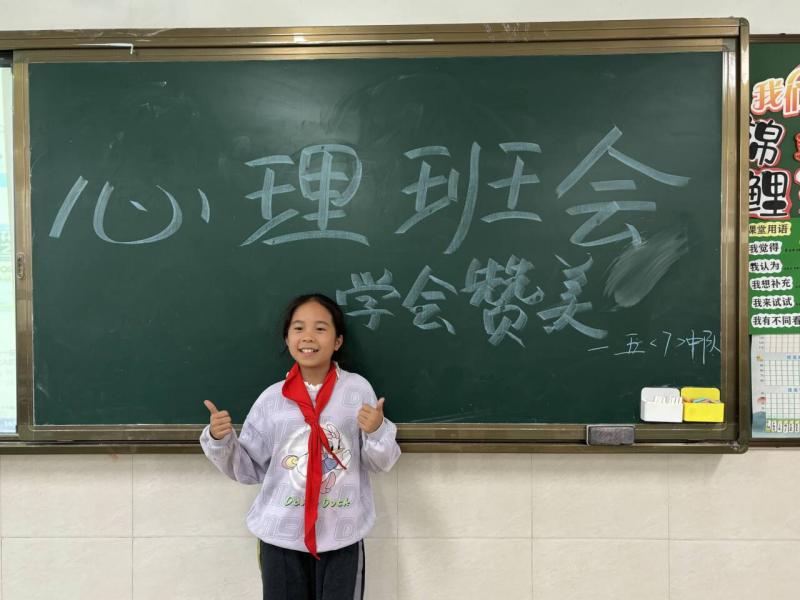 心理班会
学会赞美
一五<7>中队
我们
锦
鲤
课堂用语
我觉得……
我认为……
我想补充
我来试试
我有不同看